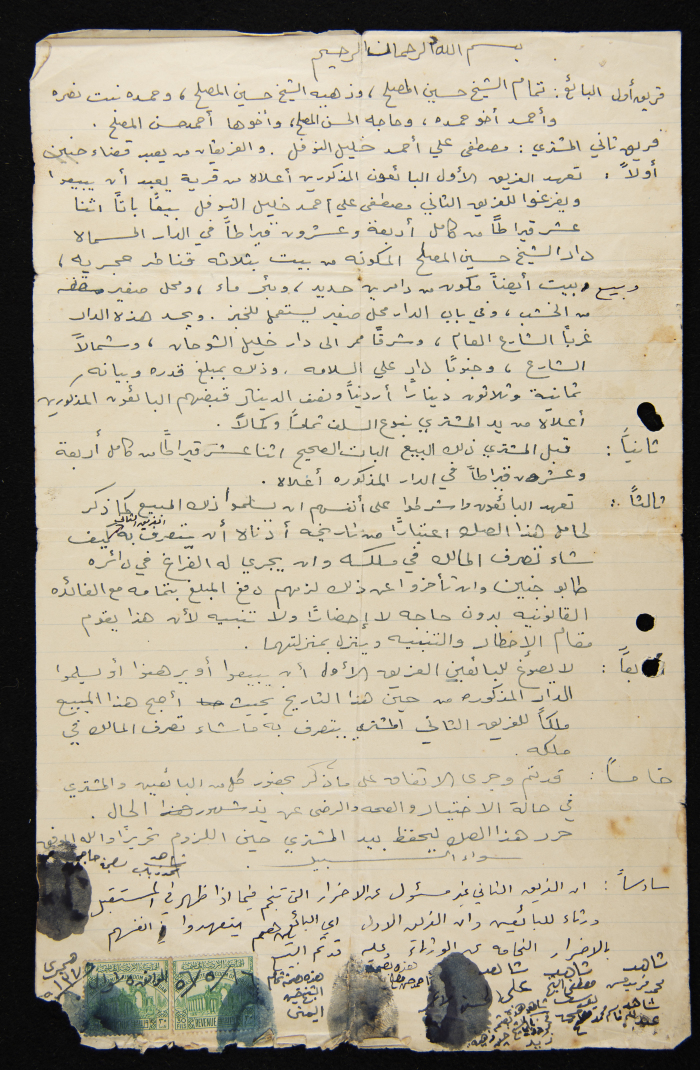 بسم الله الرحمان الرحيم
فريق أول البائع : تمام الشيخ حسين المصلح ، وذهبيه الشيخ حسين المصلح ، وحمده بنت نصره
وأحمد أخو حمده ، وحاجه الحسن المصلح ، وأخوها أحمد حسن المصلح .
فريق ثاني المشتري : مصطفى علي أحمد خليل النوفل . والفريقان من يعبد قضاء جنين
أولاً : تعهد الفريق الأول البائعون المذكورين أعلاه من قرية يعبد أن يبيعوا
ويفرغوا للفريق الثاني مصطفى علي أحمد خليل النوفل بيعًا باتًا اثنا
عشر قيراطًا من كامل أربعة وعشرون قيراطًا في الدار المسماه
دار الشيخ حسين المصلح المكونه من بيت بثلاثه قناطر حجريه ،
وبيع ، بيت أيضًا مكون من دامرين حديد ، وبئر ماء ، ومحل صغير سقفه
من الخشب ، وفي باب الدار محل صغير يستعمل للخبز . ويحد هذه الدار
غربًا الشارع العام ، وشرقًا ممر الى دار خليل الشوحان ، وشمالاً
الشارع ، وجنوبًا دار علي السلامه . وذلك بمبلغ قدره وبيانه
ثمانية وثلاثون دينارًا أردنيًا ونصف الدينار قبضهم البائعون المذكورين
أعلاه من يد المشتري بنوع السلف تمامًا وكمالاً .
ثانيًا : قبل المشتري ذلك البيع البات الصحيح اثنا عشر قيراطًا من كامل أربعة
وعشرون قيراطًا في الدار المذكوره أعلاه .
ثالثًا : تعهد البائعون واشرطوا على أنفسهم ان يسلموا ذلك المبيع كما ذكر
لحامل هذا الصك اعتبارًا من تاريخه أدناه أن يتصرف به الفريق الثاني كيف
شاء تصرف المالك في ملكه وان يجري له الفراغ في دائره
طابو جنين وان تأخروا عن ذلك لزمهم دفع المبلغ بتمامه مع الفائده
القانونيه بدون حاجه لا إحضارًا ولا تنبيه لأن هذا يقوم
مقام الإخطار والتنبيه وينزل بمنزلتهما .
رابعًا : لا يصوغ للبائعين الفريق الأول أن يبيعوا أو يرهنوا أو يسلموا
الدار المذكوره من حين هذا التاريخ بحيث أصبح هذا المبيع
ملكًا للفريق الثاني المشتري يتصرف به ما شاء تصرف المالك في
ملكه .
خامسًا : قد تم وجرى الاتفاق على ما ذكر بحضور كل من البائعين والمشتري
في حالة الاختيار والصحه والرضى عن يد شهود الحال .
حرر هذا الصك ليحفظ بيد المشتري حين اللزوم تحريرًا والله الموفق
سواء السبيل
سادسًا : ان الفريق الثاني غير مسئول عن الاضرار التي تنجم فيما اذا ظهر في المستقبل
ورثاء للبائعين وان الفريق الاول اي البائعين متعهدوا انفسهم
بالاضرار الناجمه عن الورثاء
شاهد
شاهد
شاهد
شاهد
هذه بصمة
REVENUE
REVENUE